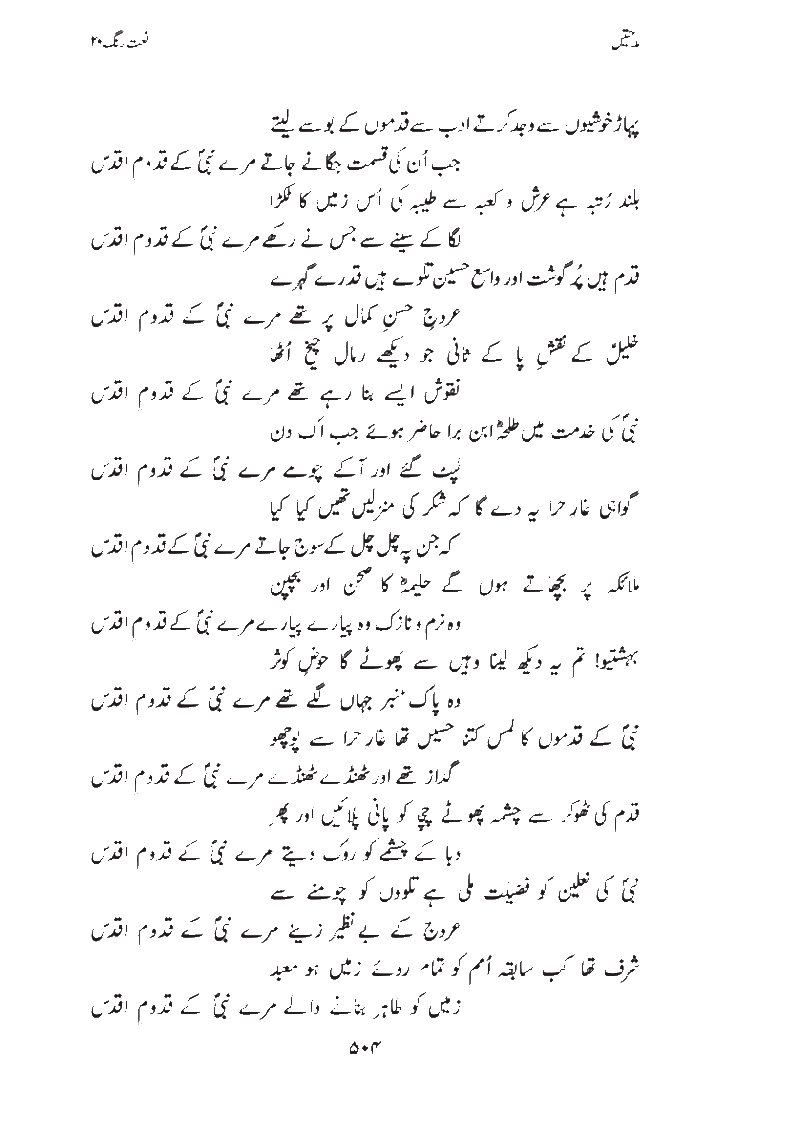 مدحتیں
نعت رنگ ۲۰
پہاڑ خوشیوں سے وجد کرتے ادب سے قدموں کے بوسے لیتے
جب اُن کی قسمت جگانے جاتے مرے نبیؐ کے قدوم اقدس
بلند رُتبہ ہے عرش و کعبہ سے طیبہ کی اُس زمیں کا ٹکڑا
لگا کے سینے سے جس نے رکھے مرے نبیؐ کے قدوم اقدس
قدم ہیں پُر گوشت اور واسع حسین تلوے ہیں قدرے گہرے
عروجِ حسنِ کمال پر تھے مرے نبیؐ کے قدوم اقدس
خلیلؑ کے نقشِ پا کے ثانی جو دیکھے رمال چیخ اُٹھا
نقوش ایسے بنا رہے تھے مرے نبیؐ کے قدوم اقدس
نبیؐ کی خدمت میں طلحہؓ ابن برا حاضر ہوئے جب اک دن
لپٹ گئے اور آکے چومے مرے نبیؐ کے قدوم اقدس
گواہی غارِ حرا یہ دے گا کہ شکر کی منزلیں تھیں کیا کیا
کہ جن پہ چل چل کے سوج جاتے مرے نبیؐ کے قدوم اقدس
ملائکہ پر بچھاتے ہوں گے حلیمہؓ کا صحن اور بچپن
وہ نرم و نازک وہ پیارے پیارے مرے نبیؐ کے قدوم اقدس
بہشتیو! تم یہ دیکھ لینا وہیں سے پھوٹے گا حوضِ کوثر
وہ پاک منبر جہاں لگے تھے مرے نبیؐ کے قدوم اقدس
نبیؐ کے قدموں کا لمس کتنا حسیں تھا غارِ حرا سے پوچھو
گداز تھے اور ٹھنڈے ٹھنڈے مرے نبیؐ کے قدوم اقدس
قدم کی ٹھوکر سے چشمہ پھوٹے چچا کو پانی پلائیں اور پھر
دبا کے چشمے کو روک دیتے مرے نبیؐ کے قدوم اقدس
نبیؐ کی نعلین کو فضیلت ملی ہے تلووں کو چومنے سے
عروج کے بے نظیر زینے مرے نبیؐ کے قدوم اقدس
شرف تھا کب سابقہ اُمم کو تمام روئے زمیں ہو معبد
زمیں کو طاہر بنانے والے مرے نبیؐ کے قدوم اقدس
۵۰۴